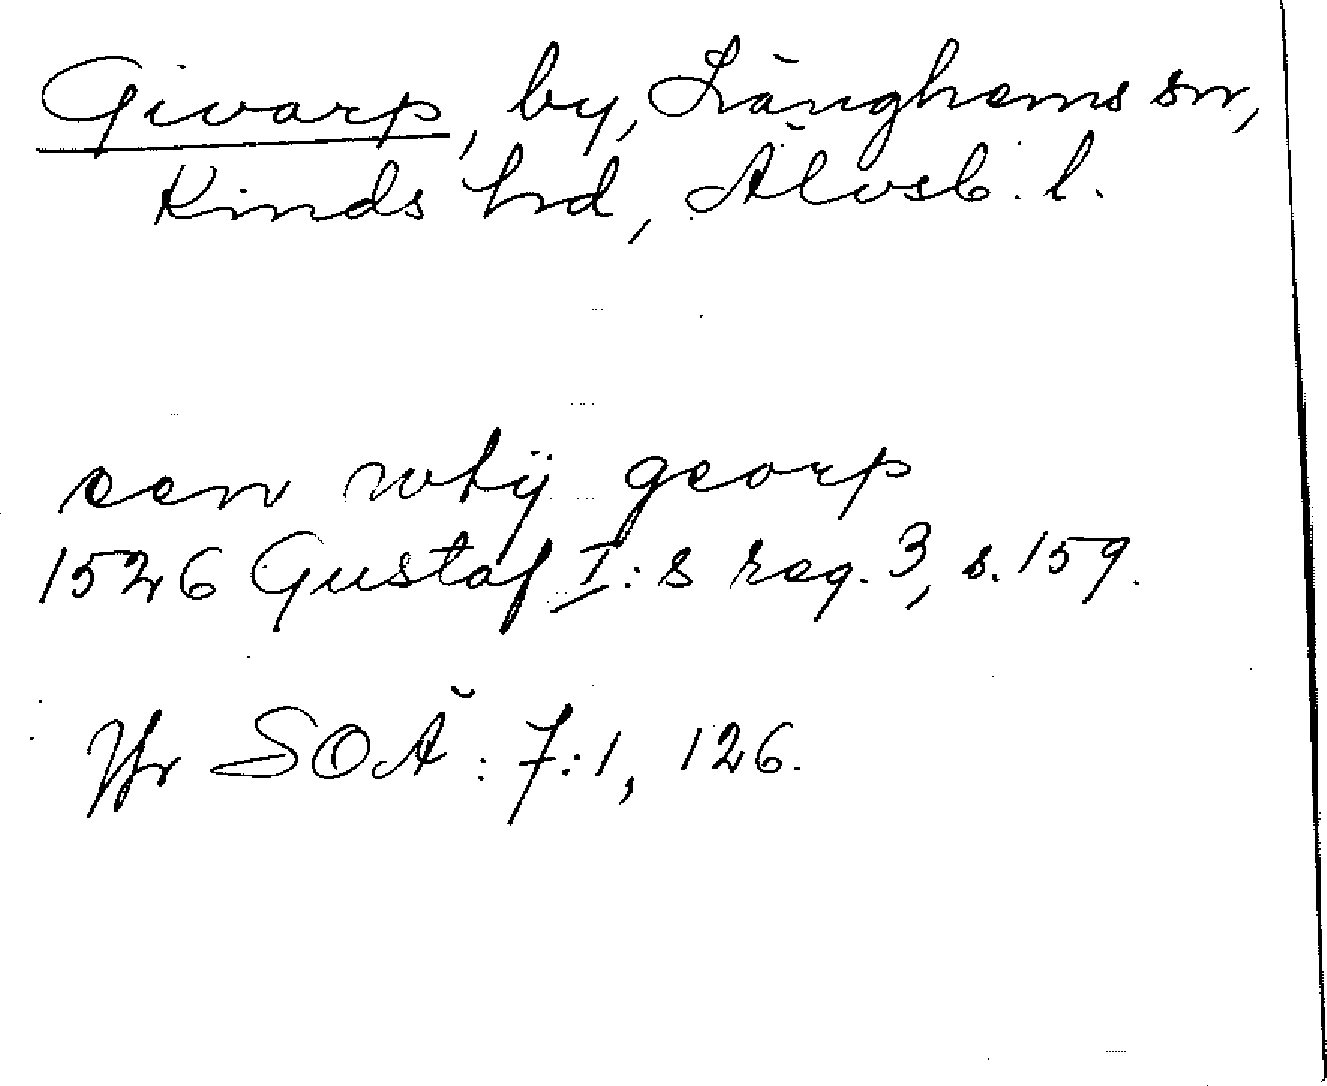 Givarp, by, Länghems sn,
Kinds hd, Älvsb. l.
een wtij georp
1526 Gustaf I:s reg. 3, s. 159.
Jfr SOÄ: 7:1, 126.